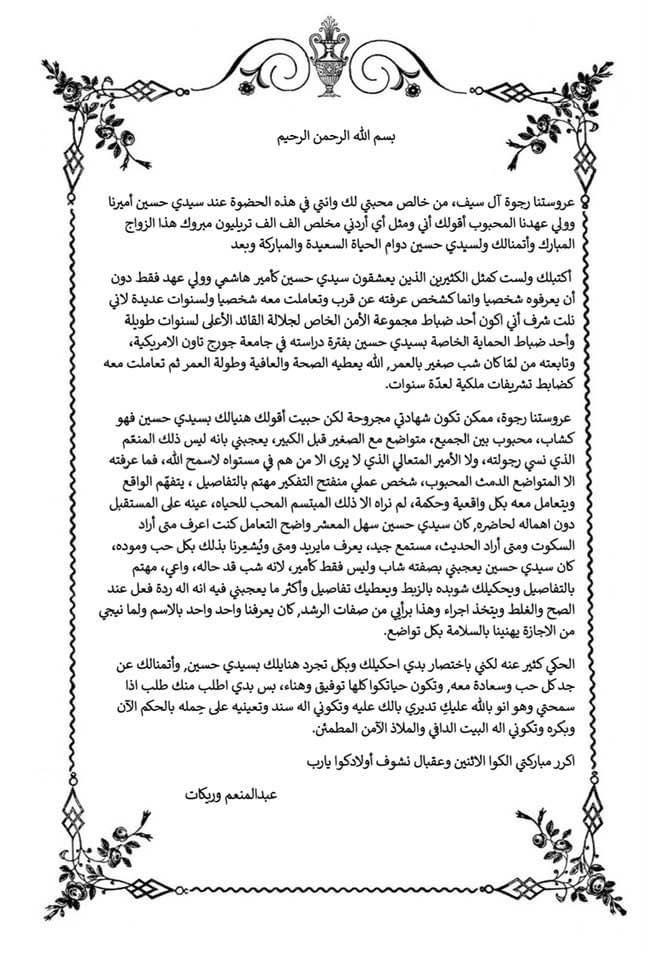 بسم الله الرحمن الرحيم
عروستنا رجوة آل سيف، من خالص محبتي لك وانتي في هذه الحضوة عند سيدي حسين أميرنا
وولي عهدنا المحبوب أقولك أني ومثل أي أردني مخلص الف الف تريليون مبروك هذا الزواج
المبارك وأتمنالك ولسيدي حسين دوام الحياة السعيدة والمباركة وبعد
أكتبلك ولست كمثل الكثيرين الذين يعشقون سيدي حسين كأمير هاشمي وولي عهد فقط دون
أن يعرفوه شخصيا وانما كشخص عرفته عن قرب وتعاملت معه شخصيا ولسنوات عديدة لاني
نلت شرف أني اكون أحد ضباط مجموعة الأمن الخاص لجلالة القائد الأعلى لسنوات طويلة
وأحد ضباط الحماية الخاصة بسيدي حسين بفترة دراسته في جامعة جورج تاون الامريكية،
وتابعته من لمّا كان شب صغير بالعمر, الله يعطيه الصحة والعافية وطولة العمر ثم تعاملت معه
كضابط تشريفات ملكية لعدّة سنوات.
عروستنا رجوة، ممكن تكون شهادتي مجروحة لكن حبيت أقولك هنيالك بسيدي حسين فهو
كشاب، محبوب بين الجميع، متواضع مع الصغير قبل الكبير، يعجبني بانه ليس ذلك المنعّم
الذي نسي رجولته، ولا الأمير المتعالي الذي لا يرى الا من هم في مستواه لاسمح الله، فما عرفته
الا المتواضع الدمث المحبوب، شخص عملي منفتح التفكير مهتم بالتفاصيل ، يتفهّم الواقع
ويتعامل معه بكل واقعية وحكمة، لم نراه الا ذلك المبتسم المحب للحياه، عينه على المستقبل
دون اهماله لحاضره, كان سيدي حسين سهل المعشر واضح التعامل كنت اعرف متى أراد
السكوت ومتى أراد الحديث، مستمع جيد، يعرف مايريد ومتى ويُشعِرنا بذلك بكل حب وموده،
كان سيدي حسين يعجبني بصفته شاب وليس فقط كأمير، لانه شب قد حاله، واعي، مهتم
بالتفاصيل ويحكيلك شوبده بالزبط ويعطيك تفاصيل وأكثر ما يعجبني فيه انه اله ردة فعل عند
الصح والغلط ويتخذ اجراء وهذا برأيي من صفات الرشد, كان يعرفنا واحد واحد بالاسم ولما نيجي
من الاجازة يهنينا بالسلامة بكل تواضع.
الحكي كثير عنه لكني باختصار بدي احكيلك وبكل تجرد هنايلك بسيدي حسين, وأتمنالك عن
جد كل حب وسعادة معه, وتكون حياتكوا كلها توفيق وهناء، بس بدي اطلب منك طلب اذا
سمحتي وهو انو بالله عليكِ تديري بالك عليه وتكوني اله سند وتعينيه على حِمله بالحكم الآن
وبكره وتكوني اله البيت الدافي والملاذ الآمن المطمئن.
اكرر مباركتي الكوا الاثنين وعقبال نشوف أولادكوا يارب
عبدالمنعم وريكات